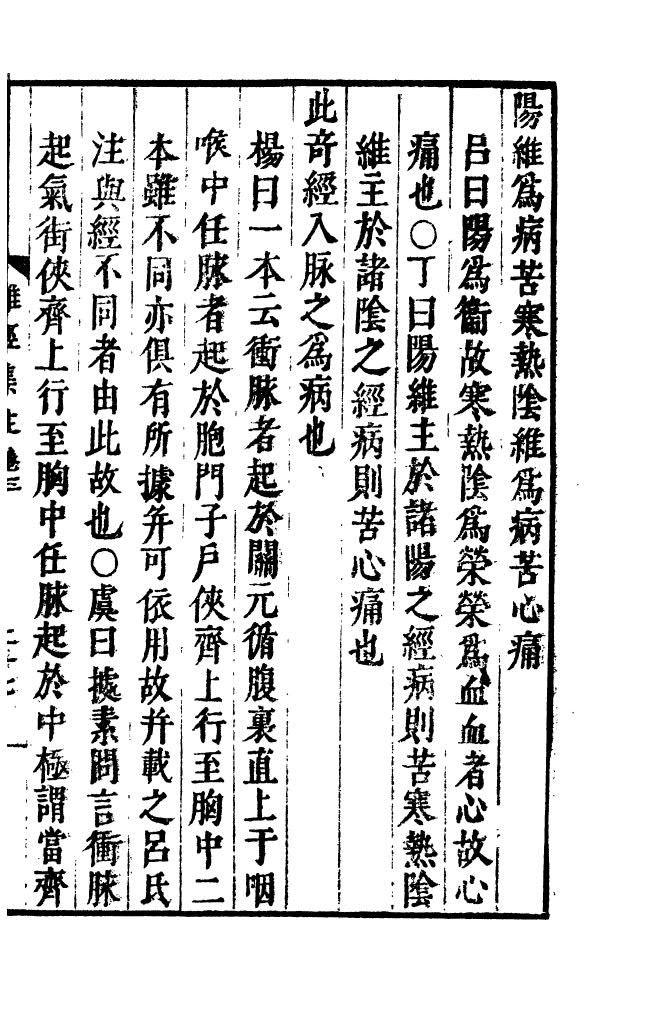 陽維爲病苦寒熱陰維爲病苦心痛
吕曰陽爲衞故寒熱陰爲榮榮爲血血者心故心
痛也○丁曰陽維主於諸陽之經病則苦寒熱陰
維主於諸陰之經病則苦心痛也
此竒經入脉之爲病也
楊曰一本云衝脉者起於關元循腹裏直上于咽
喉中任脉者起於胞門子戶俠齊上行至胸中二
本雖不同亦俱有所據并可依用故幷載之呂氏
注與經不同者由此故也○虞曰據素問言衝脉
起氣街俠齊上行至胸中任脉起於中極謂當齊
難經集註卷三